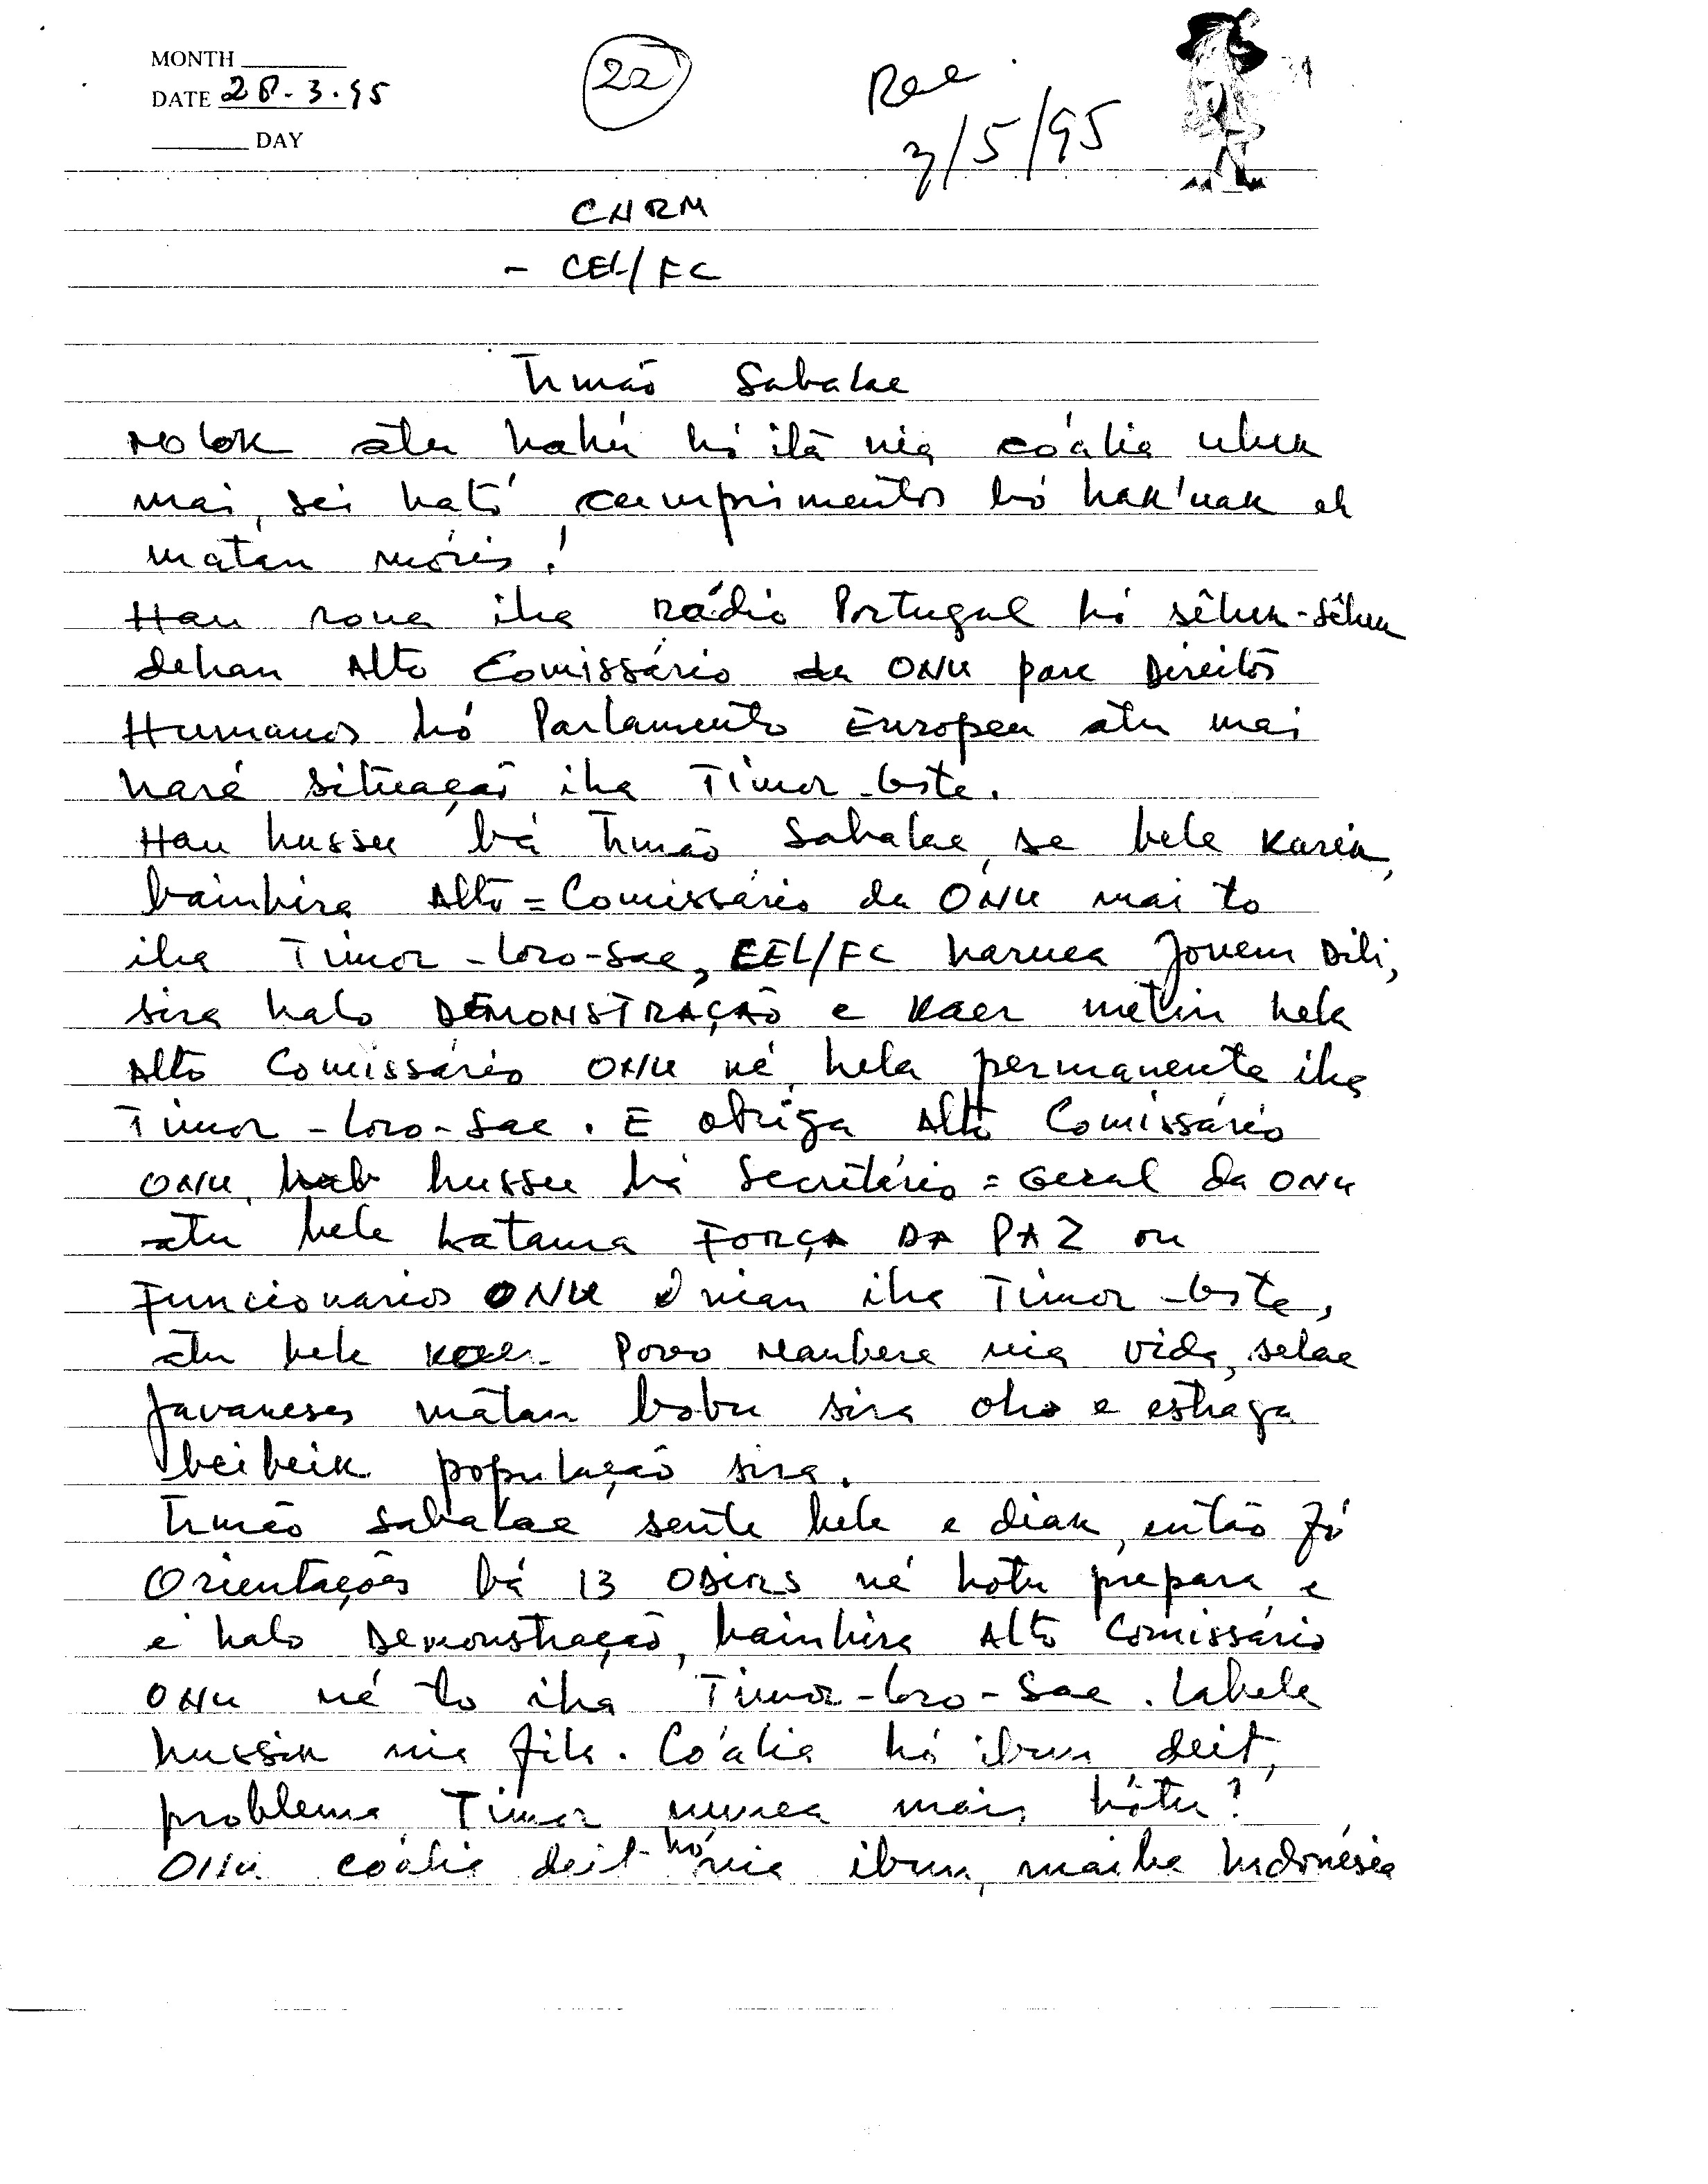 MONTH
DATE 28.3.95
DAY
22
Rec
3/5/95
CNRM
- CEL/FC
Irmão Sabalae
Molok atu hahú hó ita nia cóalia uluk
mai, seiható cumprimentos hó hak'uak ho
matan móris!
Hau rona iha Rádio Portugal hó sêluk-sêluk
dehan Alto Comissário da ONU para Direitos
Humanos hó Parlamento Europeu atu mai
haré situação iha Timor-Leste.
Hau hussu bá Irmão Sabalae, se bele karik,
bainhira Alto=Comissário da ONU mai to
iha Timor-Loro-Sae, CEL/FC haruka Jovem Dili,
sira halo DEMONSTRAÇÃO e kaer metin hela
Alto Comissário ONU né, hela permanente iha
Timor-Loro-Sae. E obriga Alto Comissário
ONU, hussu bá Secretário=Geral da ONU
atu bele hatama FORÇA DA PAZ ou
Funcionários ONU nian iha Timor-Leste,
atu bele kaer Povo Maubere nia vida, selae
Javaneses matan bobu sira oho e estraga
beibeik população sira.
Irmão Sabalae sente bele e diak, então fó
Orientações bá 13 OBIRS né hotu prepara e
e halo Demonstração, bainhira Alto Comissário
ONU né to iha Timor-Loro-Sae. Labele
hussik nia fila. Có'alia hó ibun deit,
problema Timor nunca mais hótu?
ONU cóalia deit hó nia ibun, maibe Indonésia